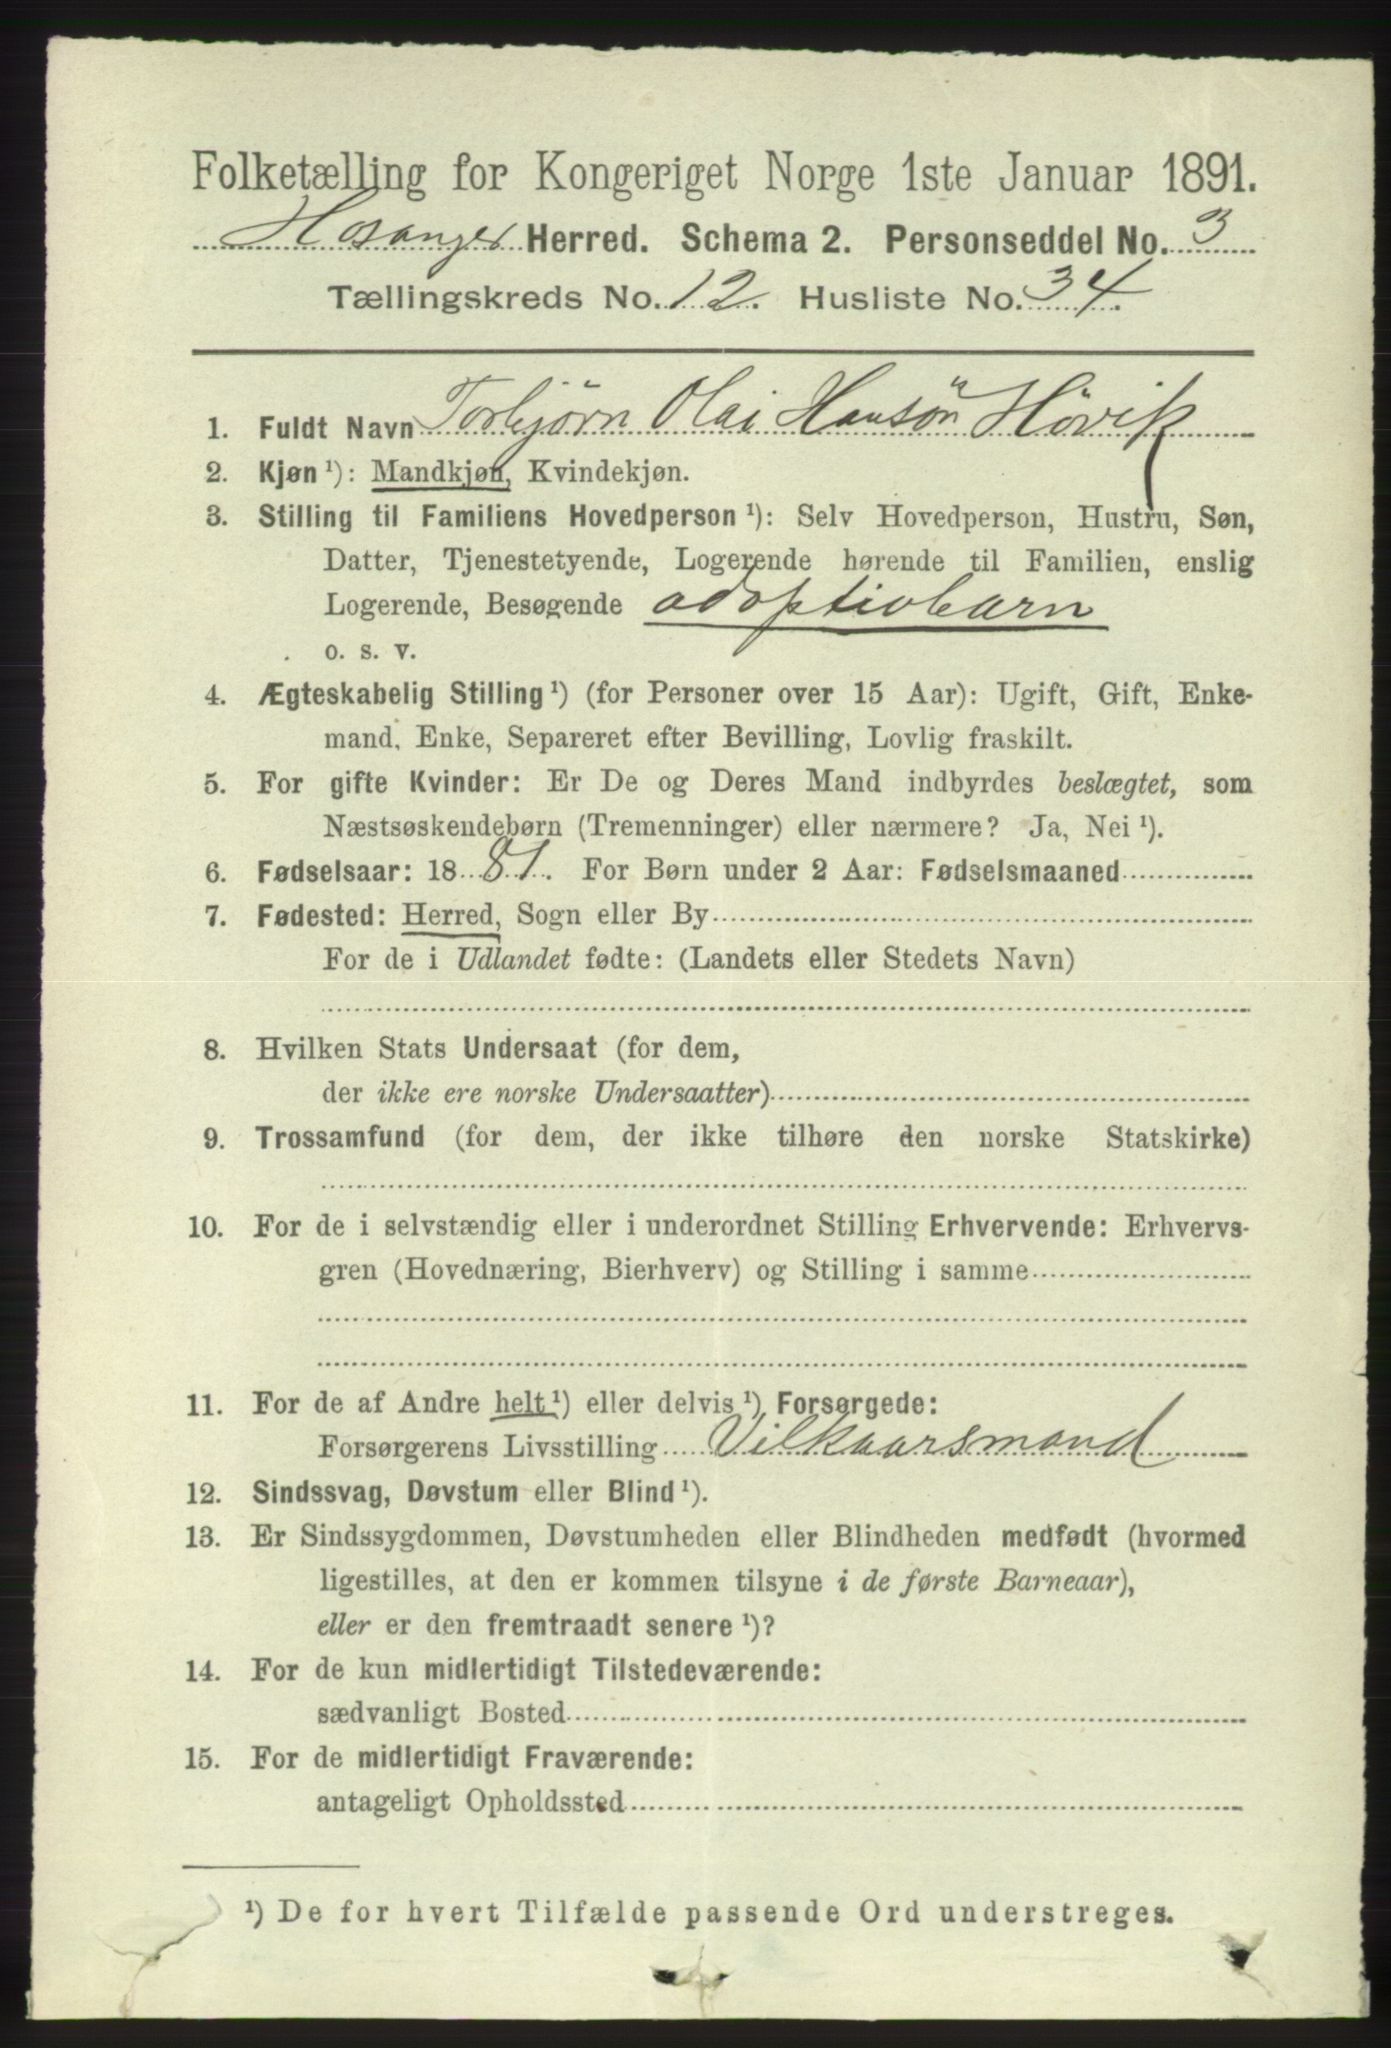 Folketælling for Kongeriget Norge 1ste Januar 1891.
Hosanger Herred. Schema 2. Personseddel No. 3
Tællingskreds No. 12. Husliste No. 34.
1. Fuldt Navn Torbjörn Olai Hansön Hövik
2. Kjøn ¹): Mandkjøn, Kvindekjøn.
3. Stilling til Familiens Hovedperson ¹): Selv Hovedperson, Hustru, Søn,
Datter, Tjenestetyende, Logerende hørende til Familien, enslig
Logerende, Besøgende adoptivbarn
o. s. v.
4. Ægteskabelig Stilling ¹) (for Personer over 15 Aar): Ugift, Gift, Enke-
mand, Enke, Separeret efter Bevilling, Lovlig fraskilt.
5. For gifte Kvinder: Er De og Deres Mand indbyrdes beslægtet, som
Næstsøskendebørn (Tremenninger) eller nærmere? Ja, Nei ¹).
6. Fødselsaar: 1881. For Børn under 2 Aar: Fødselsmaaned
7. Fødested: Herred, Sogn eller By
For de i Udlandet fødte: (Landets eller Stedets Navn)
8. Hvilken Stats Undersaat (for dem,
der ikke ere norske Undersaatter)
9. Trossamfund (for dem, der ikke tilhøre den norske Statskirke)
10. For de i selvstændig eller i underordnet Stilling Erhvervende: Erhvervs-
gren (Hovednæring, Bierhverv) og Stilling i samme
11. For de af Andre helt ¹) eller delvis ¹) Forsørgede:
Forsørgerens Livsstilling Vilkaarsmand
12. Sindssvag, Døvstum eller Blind ¹).
13. Er Sindssygdommen, Døvstumheden eller Blindheden medfødt (hvormed
ligestilles, at den er kommen tilsyne i de første Barneaar),
eller er den fremtraadt senere ¹)?
14. For de kun midlertidigt Tilstedeværende:
sædvanligt Bosted
15. For de midlertidigt Fraværende:
antageligt Opholdssted
¹) De for hvert Tilfælde passende Ord understreges.